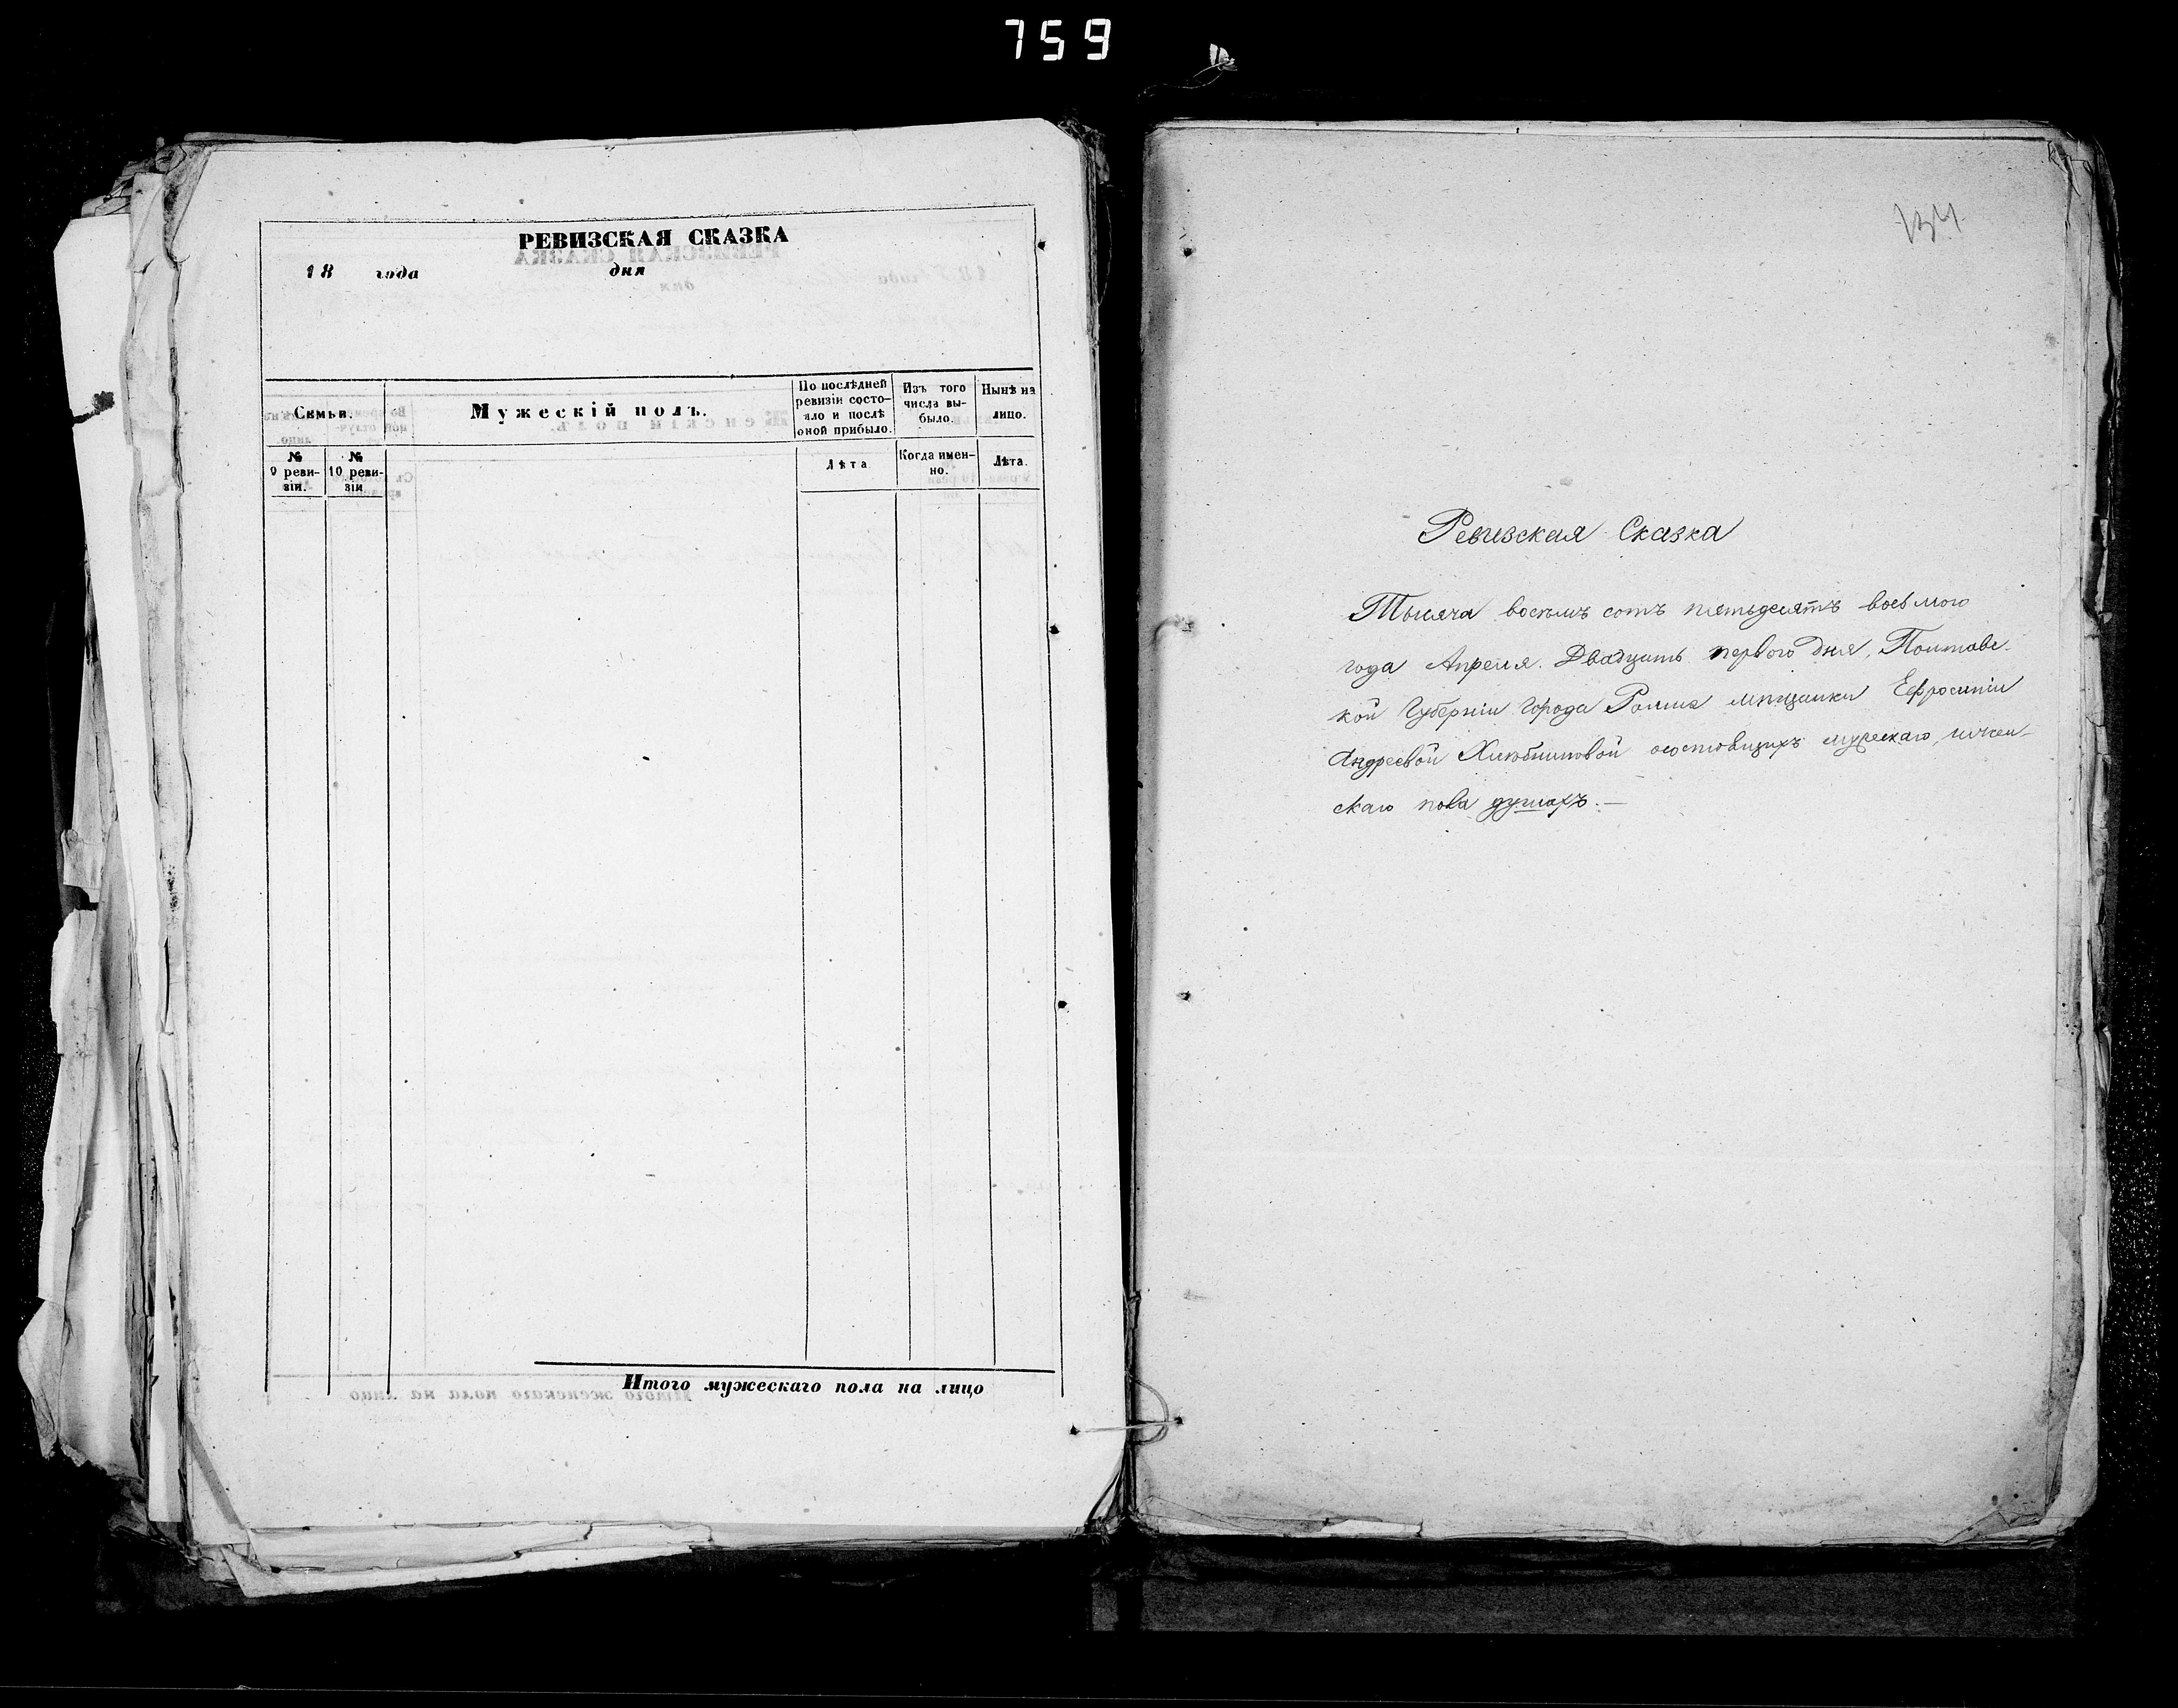 759
РЕВИЗСКАЯ СКАЗКА
18 года дня
Семьи.
Мужескій полъ.
По послѣдней ревизіи состояло и послѣ оной прибыло.
Изъ того числа выбыло.
Нынѣ на лицо.
№ 9 ревизіи.
№ 10 ревизіи
Лѣта
Когда именно.
Лѣта.
Итого мужескаго пола на лицо
134
Ревизская Сказка
Тысяча восемъ сотъ пятьдесятъ восьмого
года Апреля Двадцать первого Дня, Полтавс-
кой Губерніи Города Ромна мѣщанки Ефросиніи
Андреевой состовщихъ мужескаго, и жен-
скаго пола душахъ.—